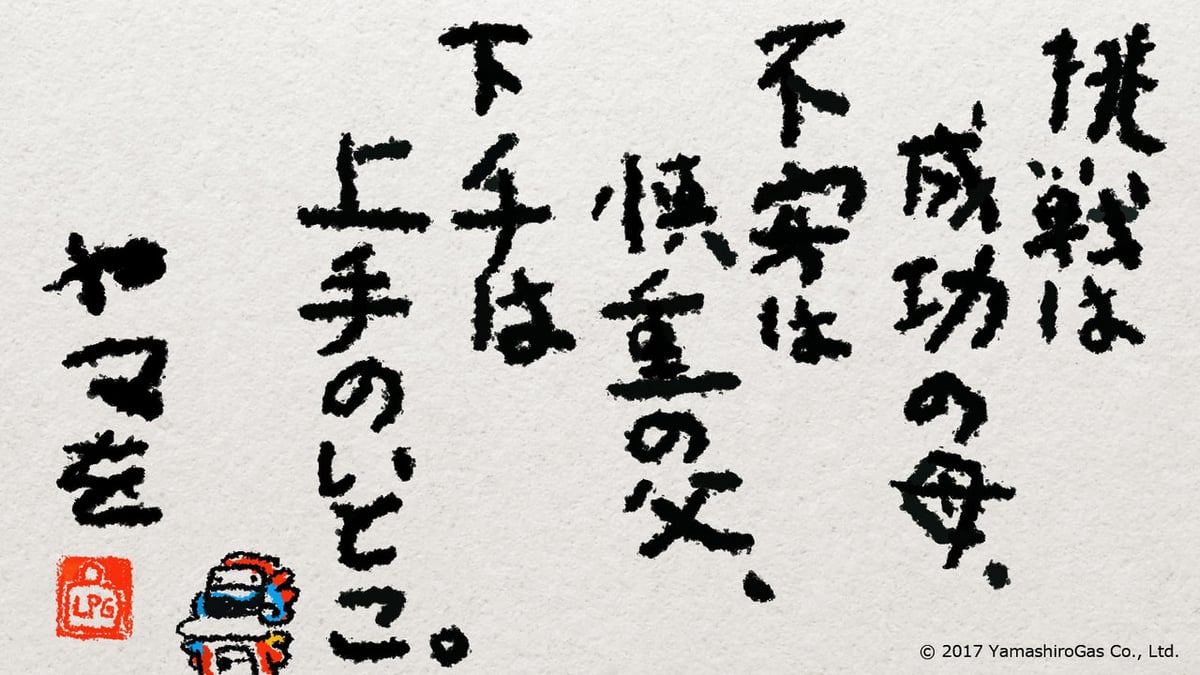 挑戦は
成功の母、
不安は
慎重の父、
下手は
上手のいとこ。
ヤマを
LPG
© 2017 YamashiroGas Co., Ltd.